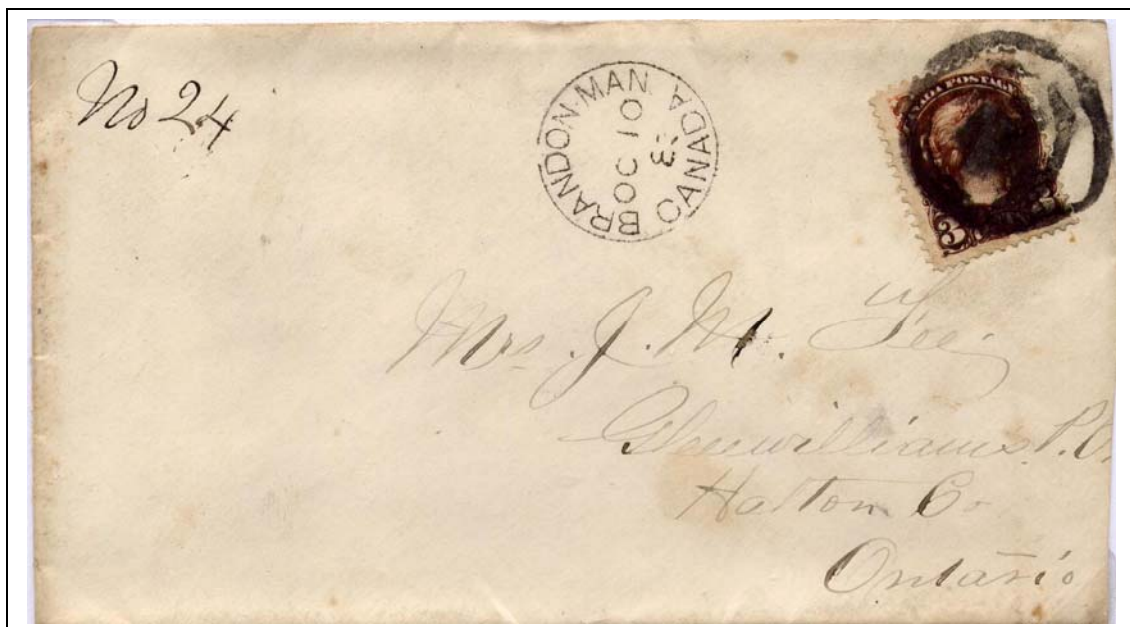 No 24
BRANDON·MAN
OC 10
CANADA
CANADA POSTAGE
3
Mrs. J. M. Fee
Glenwilliams P.O
Halton Co
Ontario